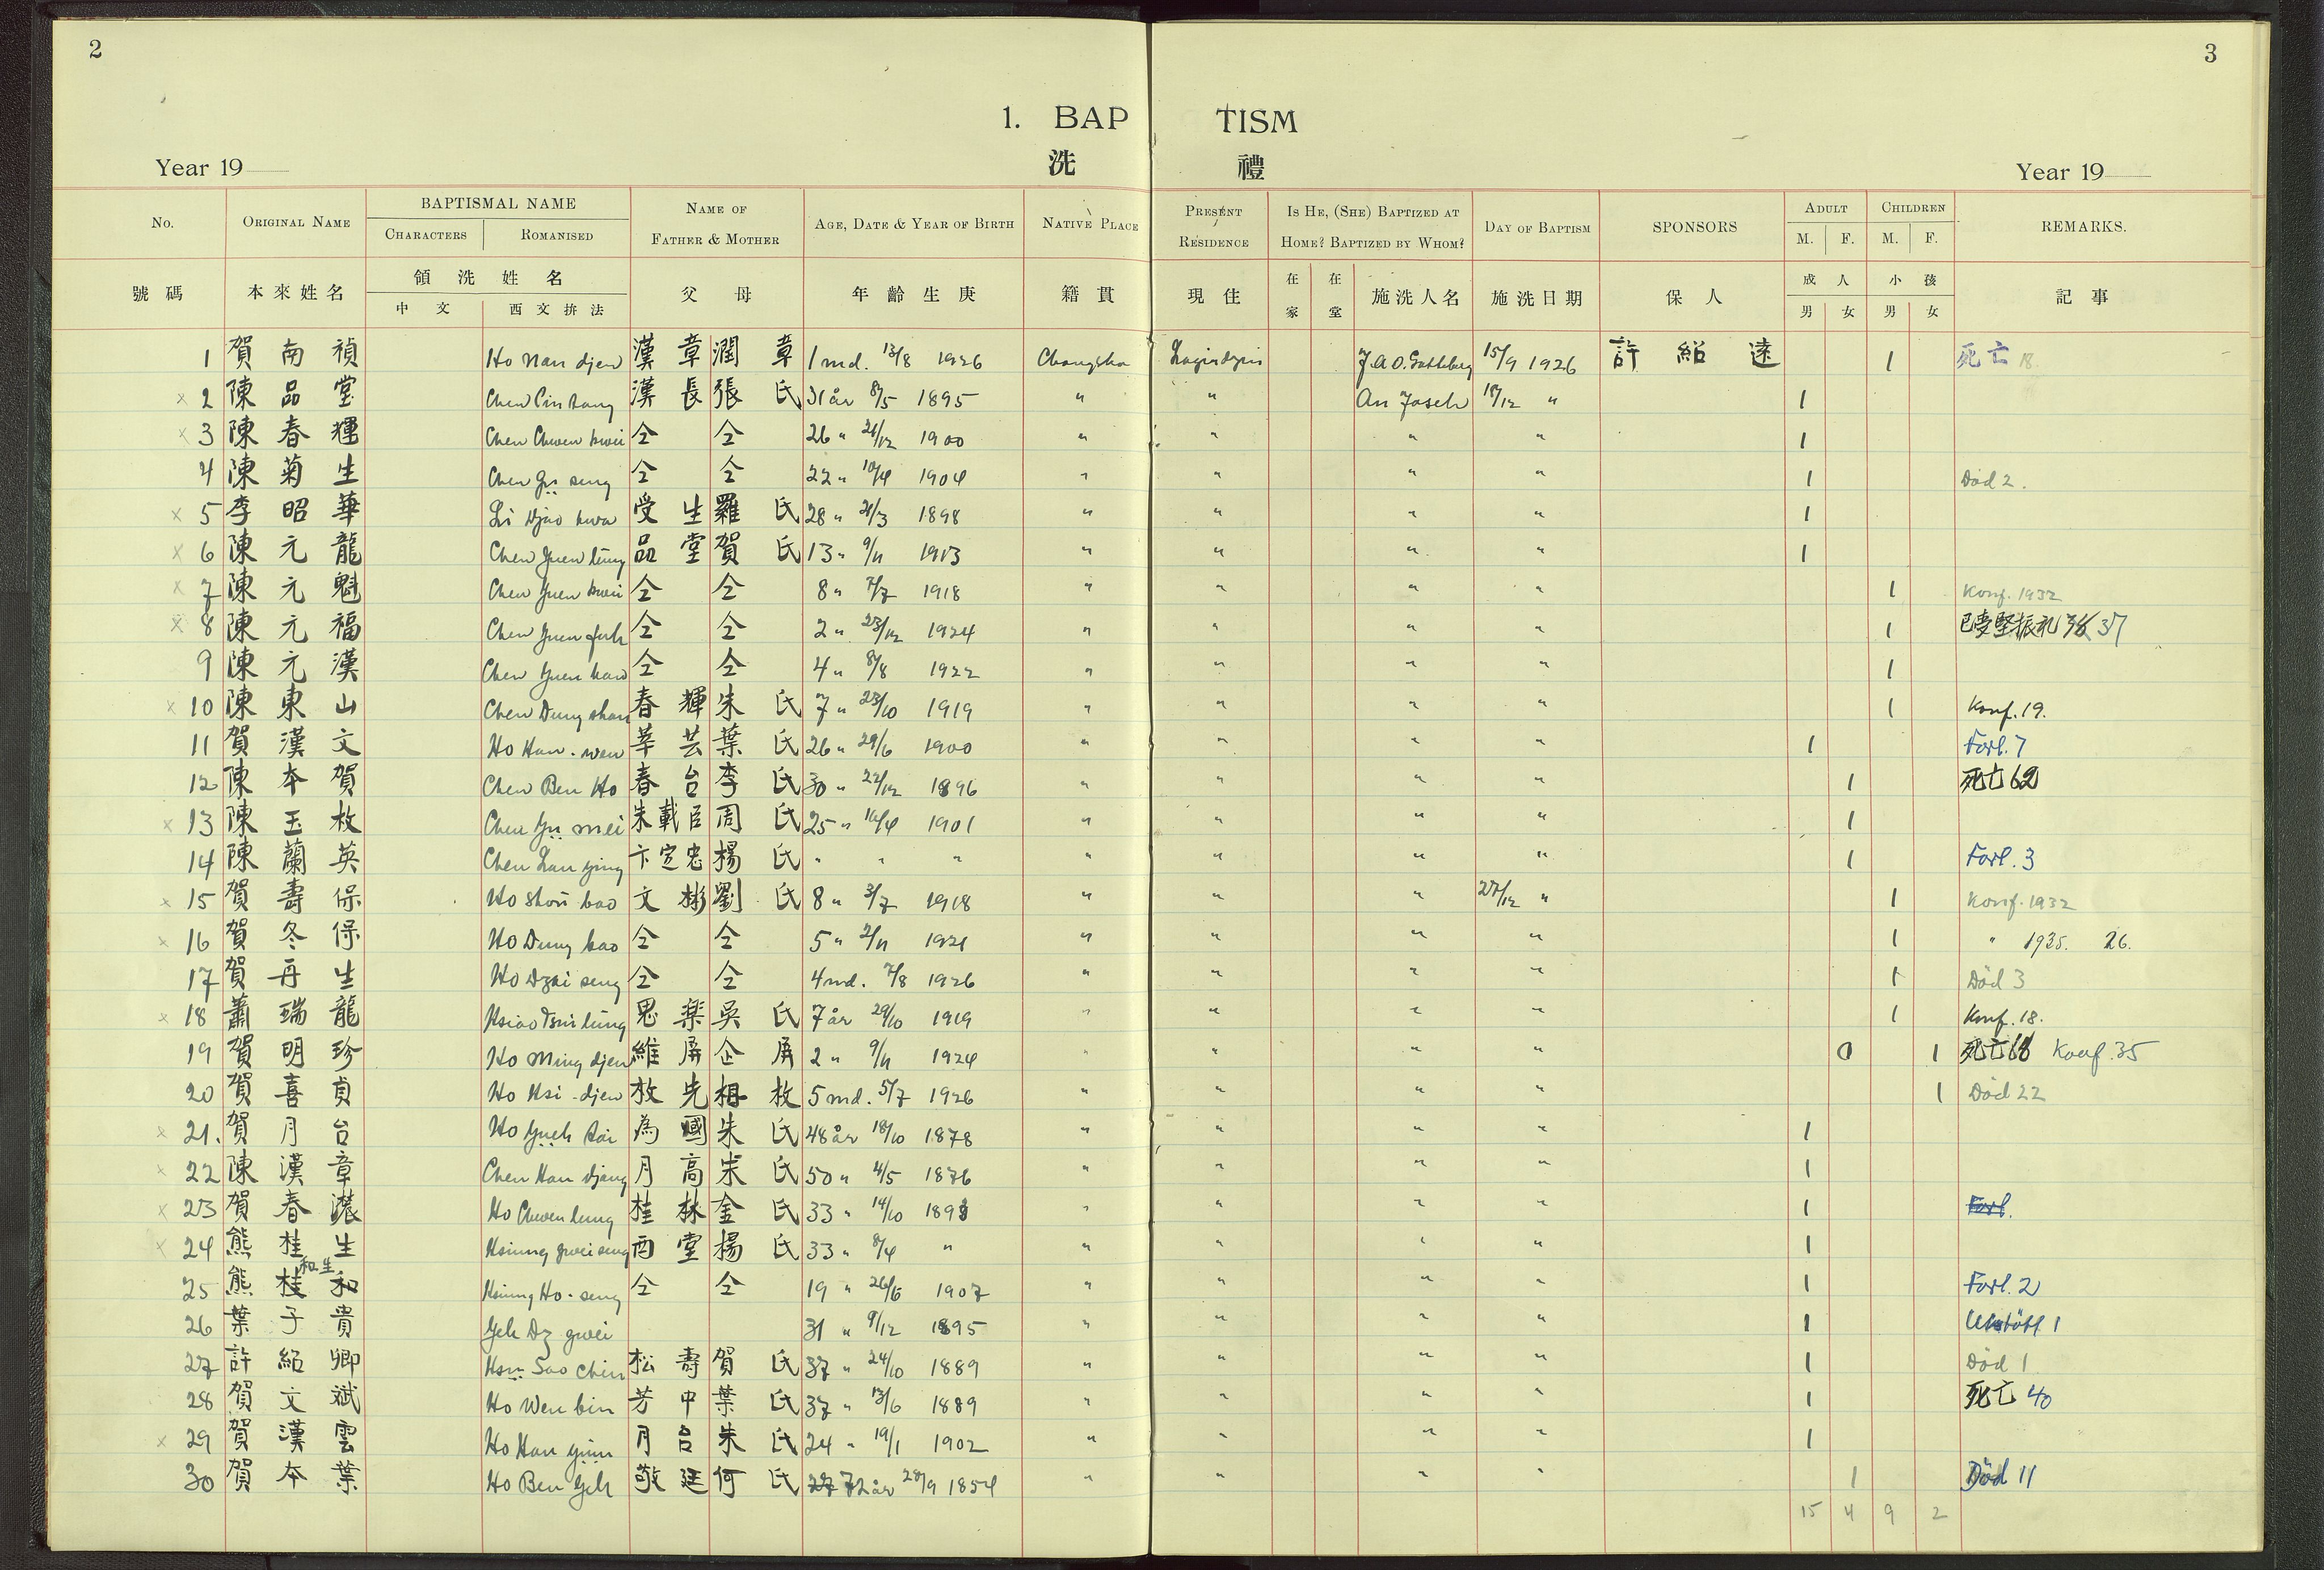 2
3
1. BAP TISM
洗 禮
Year 19
Year 19
No. ORIGINAL NAME BAPTISMAL NAME NAME OF FATHER & MOTHER AGE, DATE & YEAR OF BIRTH NATIVE PLACE PRESENT RESIDENCE IS HE, (SHE) BAPTIZED AT HOME? BAPTIZED BY WHOM? DAY OF BAPTISM SPONSORS ADULT CHILDREN REMARKS.
CHARACTERS ROMANISED M. F. M. F.
號碼 本來姓名 領洗姓名 父母 年齡生庚 籍貫 現住 在家 在堂 施洗人名 施洗日期 保人 成人 小孩 記事
中文 西文拚法 男 女 男 女
1 賀南禎 Ho Nan djen 漢章 潤章 1 md. 13/8 1926 Changsha 15/9 1926 許紹遠 1 死亡 18.
x 2 陳品堂 Chen Pin tang 漢長 張氏 31 år 8/5 1895 " " An Joseh 18/12 " 1
x 3 陳春輝 Chen Chwen hwei 仝 仝 26 " 21/12 1900 " " " " 1
4 陳菊生 Chen Gü seng 仝 仝 22 " 10/4 1904 " " " " 1 Död 2.
x 5 李昭華 Li Djao hwa 受生 羅氏 28 " 21/3 1898 " " " " 1
x 6 陳元龍 Chen Yuen lung 品堂 賀氏 13 " 9/11 1913 " " " " 1
x 7 陳元魁 Chen Yuen kwei 仝 仝 8 " 7/7 1918 " " " " 1 Konf. 1932
x 8 陳元福 Chen Yuen fuh 仝 仝 2 " 23/12 1924 " " " " 1 已受堅振礼 37
9 陳元漢 Chen Yuen han 仝 仝 4 " 8/8 1922 " " " " 1
x 10 陳東山 Chen Dung shan 春輝 朱氏 7 " 23/10 1919 " " " " 1 Konf. 19.
11 賀漢文 Ho Han-wen 葉氏 26 " 29/6 1900 " " " " 1 Forl. 7
12 陳本賀 Chen Ben Ho 春台 李氏 30 " 22/12 1896 " " " " 1 死亡 62
x 13 陳玉枚 Chen Yü mei 朱載臣 周氏 25 " 16/4 1901 " " " " 1
14 陳蘭英 Chen Lan ying 卞定忠 楊氏 " " " " " " " 1 Forl. 3
x 15 賀壽保 Ho Shou bao 文彬 劉氏 8 " 3/7 1918 " " " 27/12 " 1 Konf. 1932
x 16 賀冬保 Ho Dung bao 仝 仝 5 " 2/11 1921 " " " " 1 " 1935. 26.
17 賀再生 Ho Dzai seng 仝 仝 4 md. 7/8 1926 " " " " 1 Död 3
x 18 蕭瑞龍 Hsiao Tsui lung 思樂 吳氏 7 år 29/10 1919 " " " " 1 Konf. 18.
19 賀明珍 Ho Ming djen 維屏 企屏 2 " 9/11 1924 " " " " 0 1 死亡 68 Konf. 35
20 賀喜貞 Ho Hsi-djen 放先 相枚 5 md. 5/7 1926 " " " " 1 Död 22
x 21. 賀月台 Ho Yueh tai 為國 朱氏 48 år 18/10 1878 " " " " 1
x 22 陳漢章 Chen Han djang 月高 宋氏 50 " 4/5 1876 " " " " 1
x 23 賀春濃 Ho Chwen lung 桂林 金氏 33 " 14/10 1893 " " " " 1 Forl.
x 24 熊桂生 Hsiung gwei seng 酉堂 楊氏 33 " 8/4 " " " " " 1
25 熊桂和 和生 Hsiung Ho-seng 仝 仝 19 " 26/6 1907 " " " " 1 Forl. 2
26 葉子貴 Yeh Dz gwei 31 " 9/12 1895 " " " " 1 Utstött 1
27 許紹卿 Hsü Sao chin 松壽 賀氏 37 " 24/10 1889 " " " " 1 Död 1
28 賀文斌 Ho Wen bin 芳中 葉氏 37 " 13/6 1889 " " " " 1 死亡 40
x 29 賀漢雲 Ho Han yün 月台 朱氏 24 " 19/1 1902 " " " " 1
30 賀本葉 Ho Ben Yeh 敬廷 何氏 72 år 28/9 1854 " " " " 1 Död 11
15 4 9 2